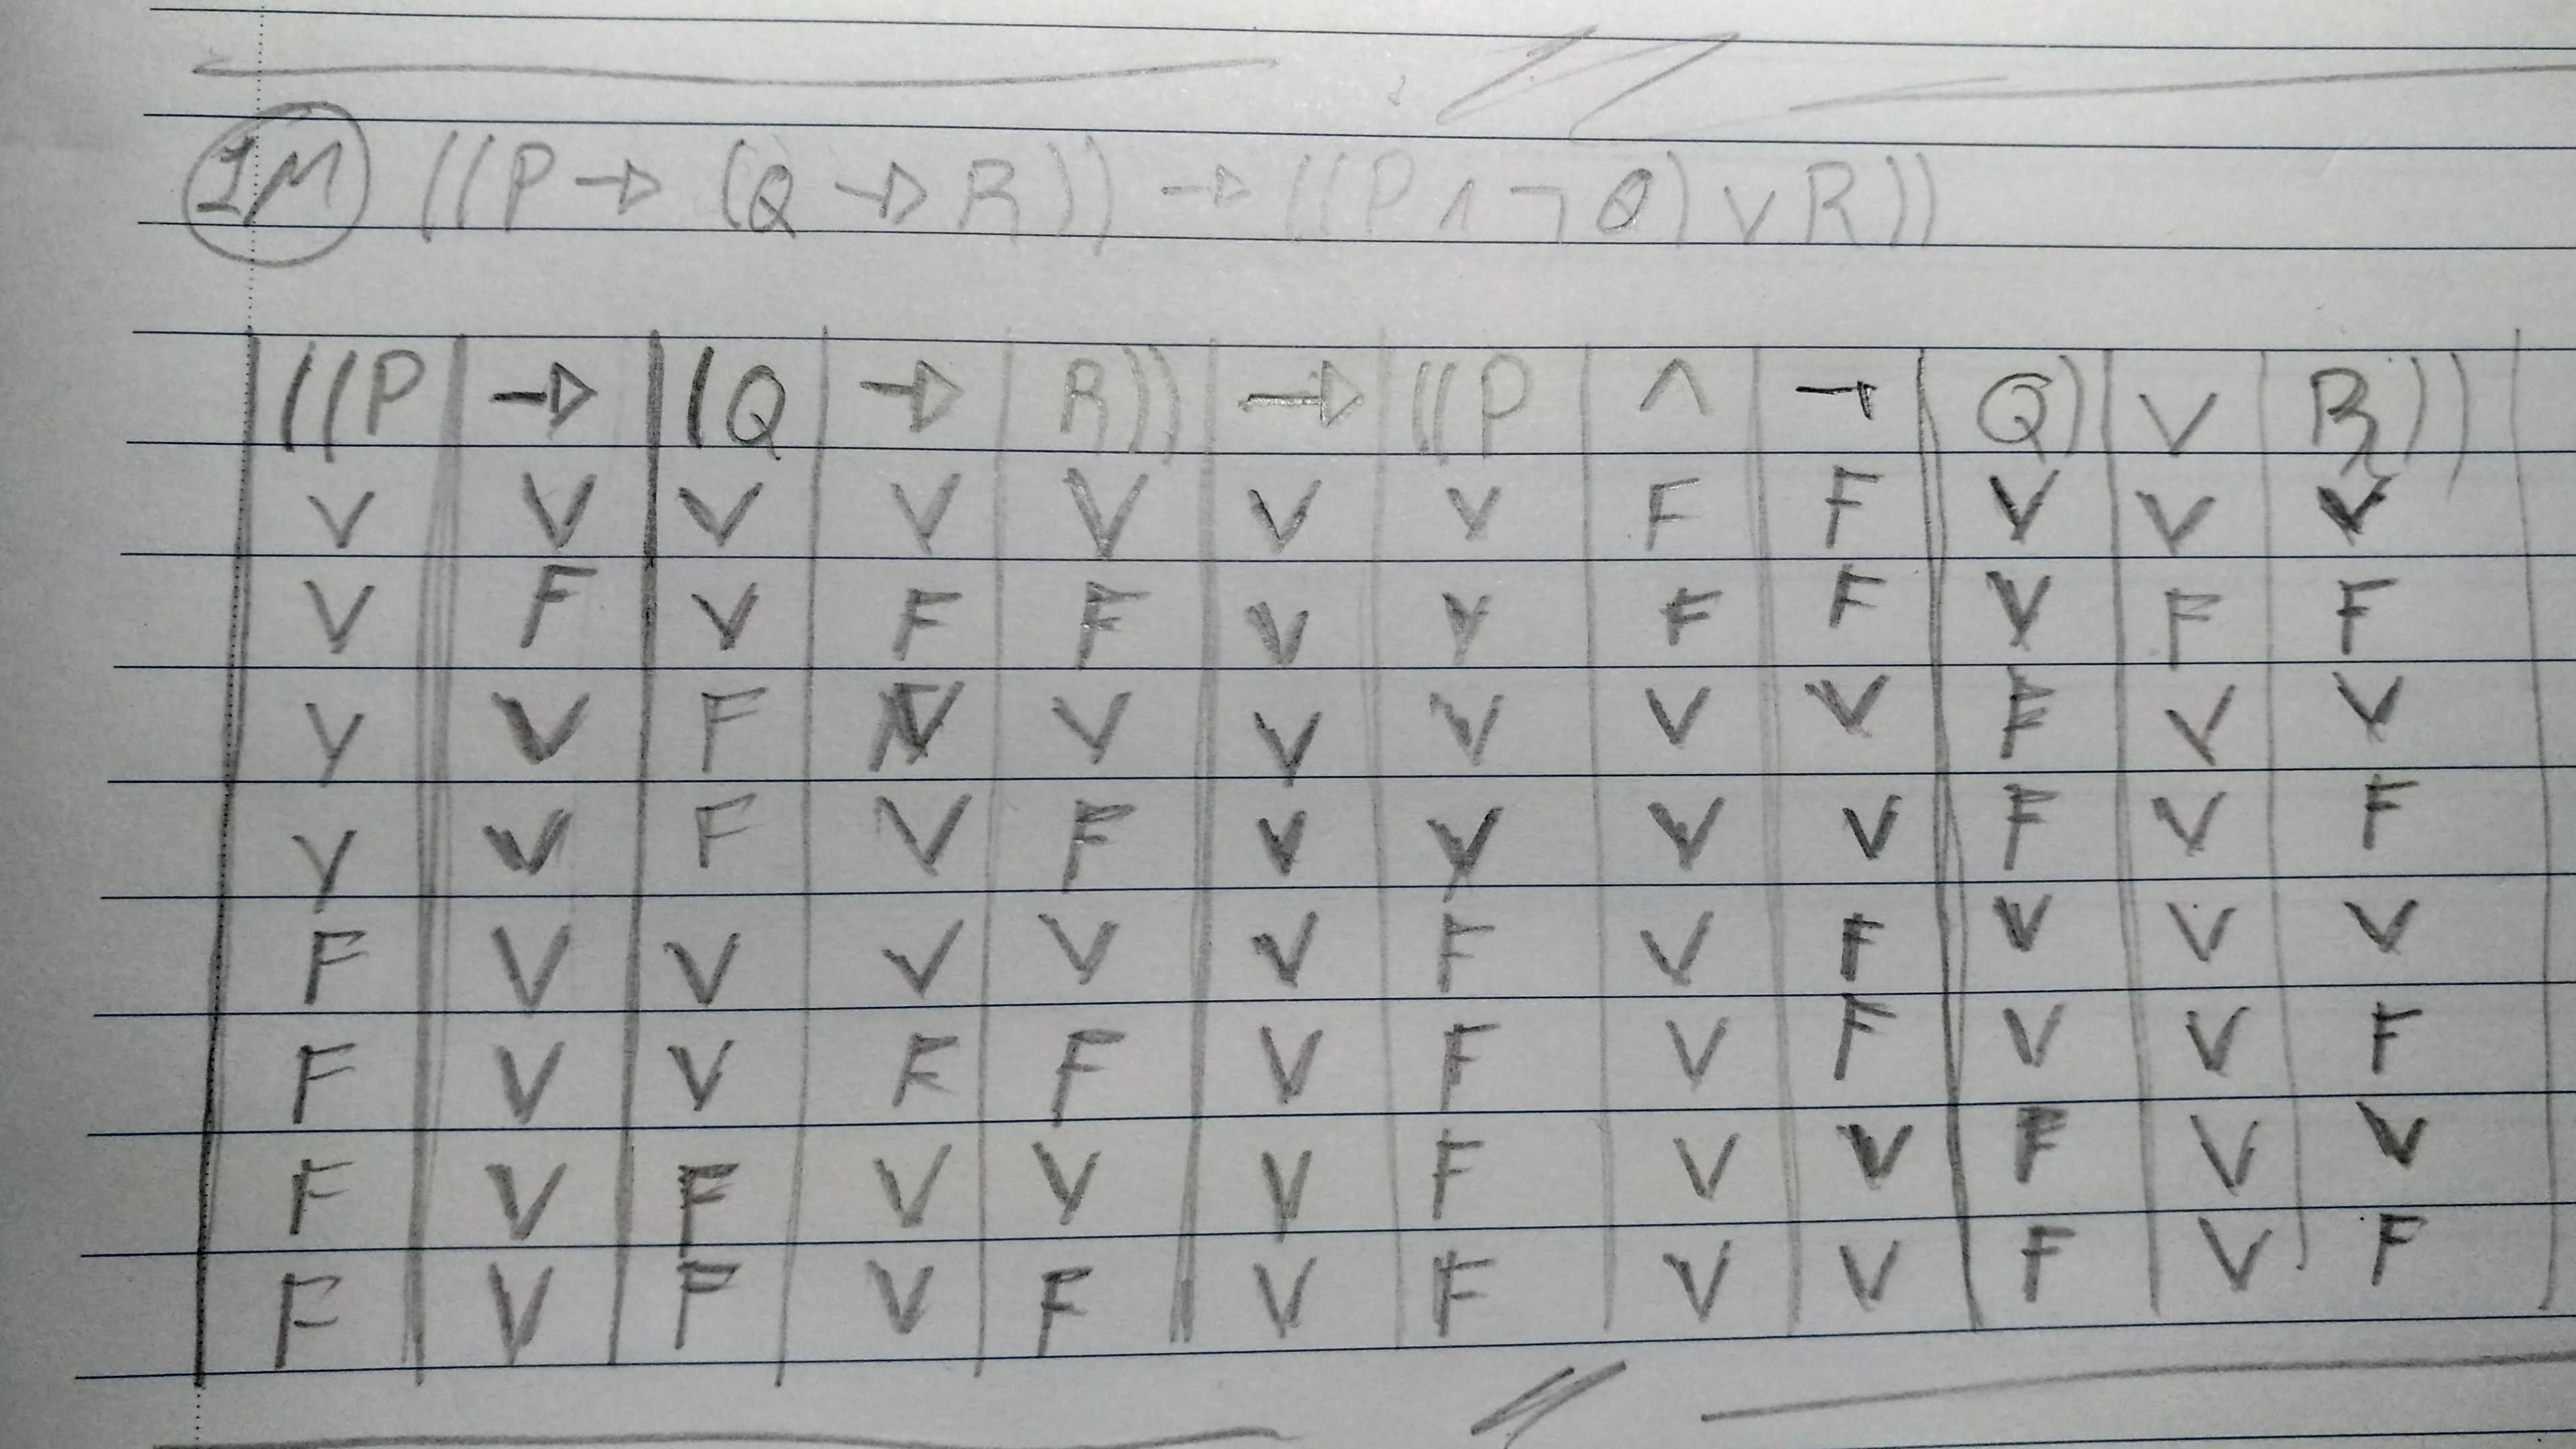 1M ((P → (Q → R)) → ((P ∧ ¬ Q) ∨ R))
((P → (Q → R)) → ((P ∧ ¬ Q) ∨ R))
V V V V V V V F F V V V
V F V F F V V F F V F F
V V F V V V V V V F V V
V V F V F V V V V F V F
F V V V V V F V F V V V
F V V F F V F V F V V F
F V F V V V F V V F V V
F V F V F V F V V F V F